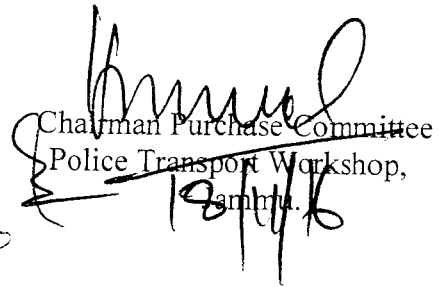 Chairman Purchase Committee
Police Transport Workshop,
Jammu.
18/11/16